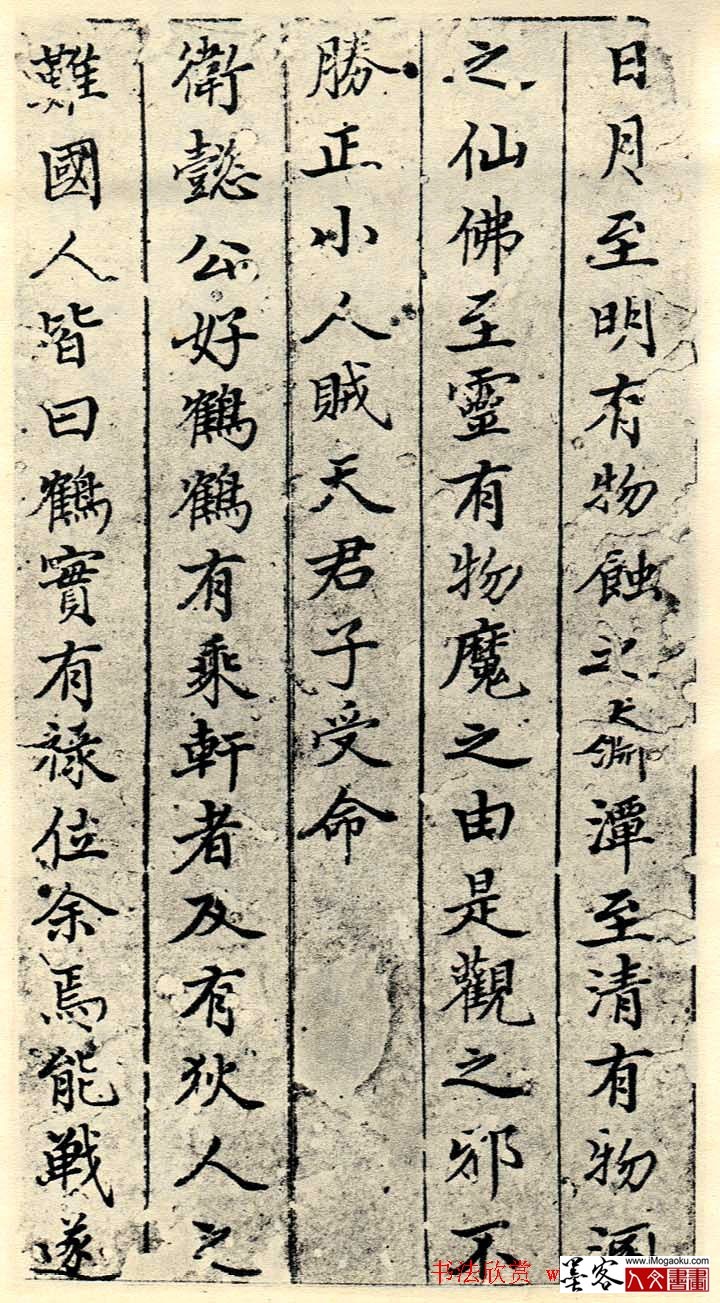 日月至明有物蝕之淵潭至清有物
之仙佛至靈有物魔之由是觀之邪不
勝正小人賊天君子受命
衛懿公好鶴鶴有乘軒者及有狄人之
難國人皆曰鶴實有祿位余焉能戰遂
书法欣赏 w
墨客
www.iMogaoku.com
人文書畫